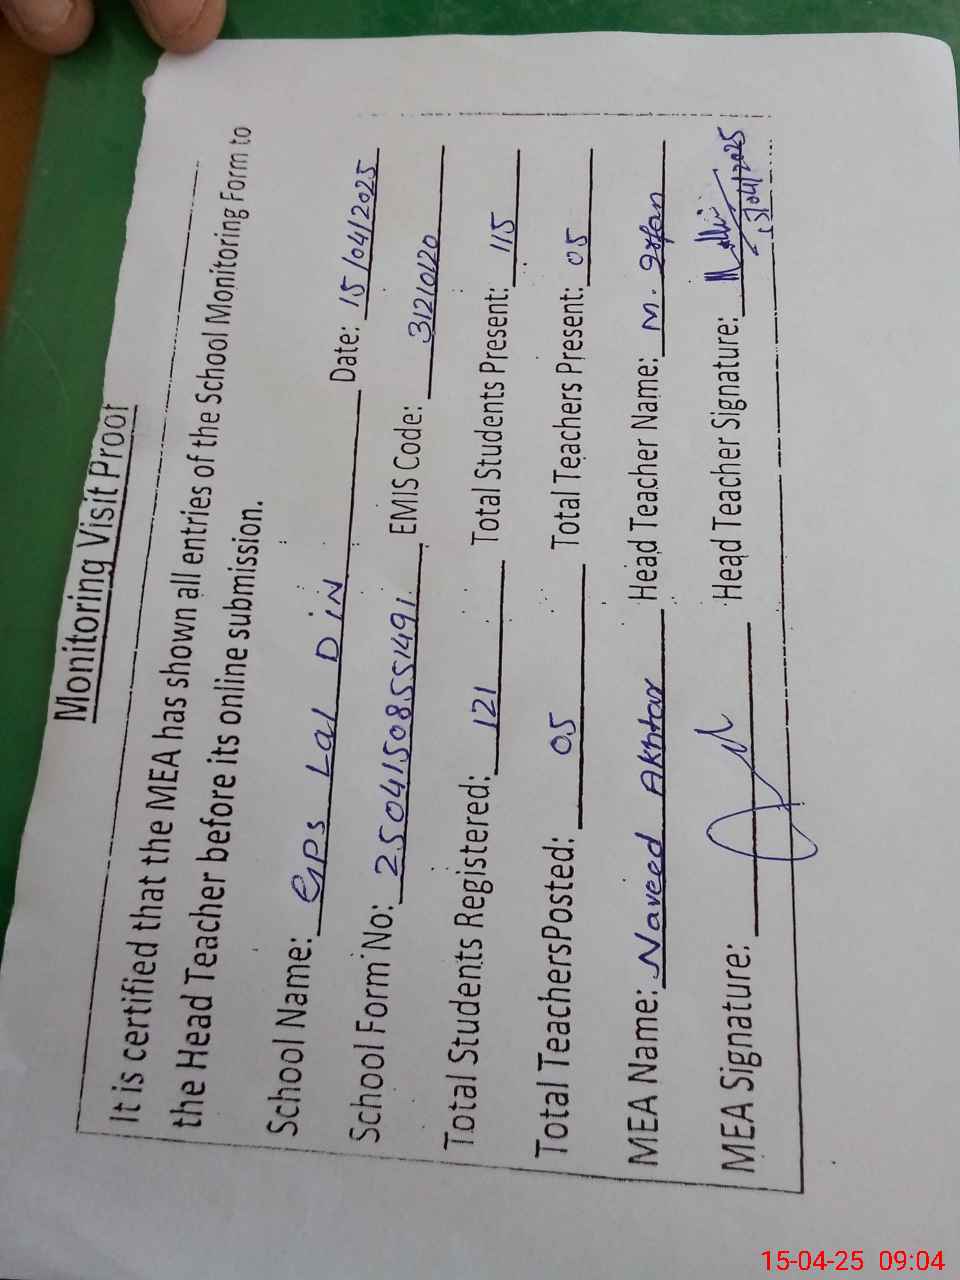 Monitoring Visit Proof
It is certified that the MEA has shown all entries of the School Monitoring Form to
the Head Teacher before its online submission.
School Name: GPS Lal Din Date: 15/04/2025
School Form No: 25041508551491 EMIS Code: 31210120
Total Students Registered: 121 Total Students Present: 115
Total TeachersPosted: 05 Total Teachers Present: 05
MEA Name: Naveed Akhtar Head Teacher Name: M. Irfan
MEA Signature: Head Teacher Signature:
15/04/2025
15-04-25 09:04